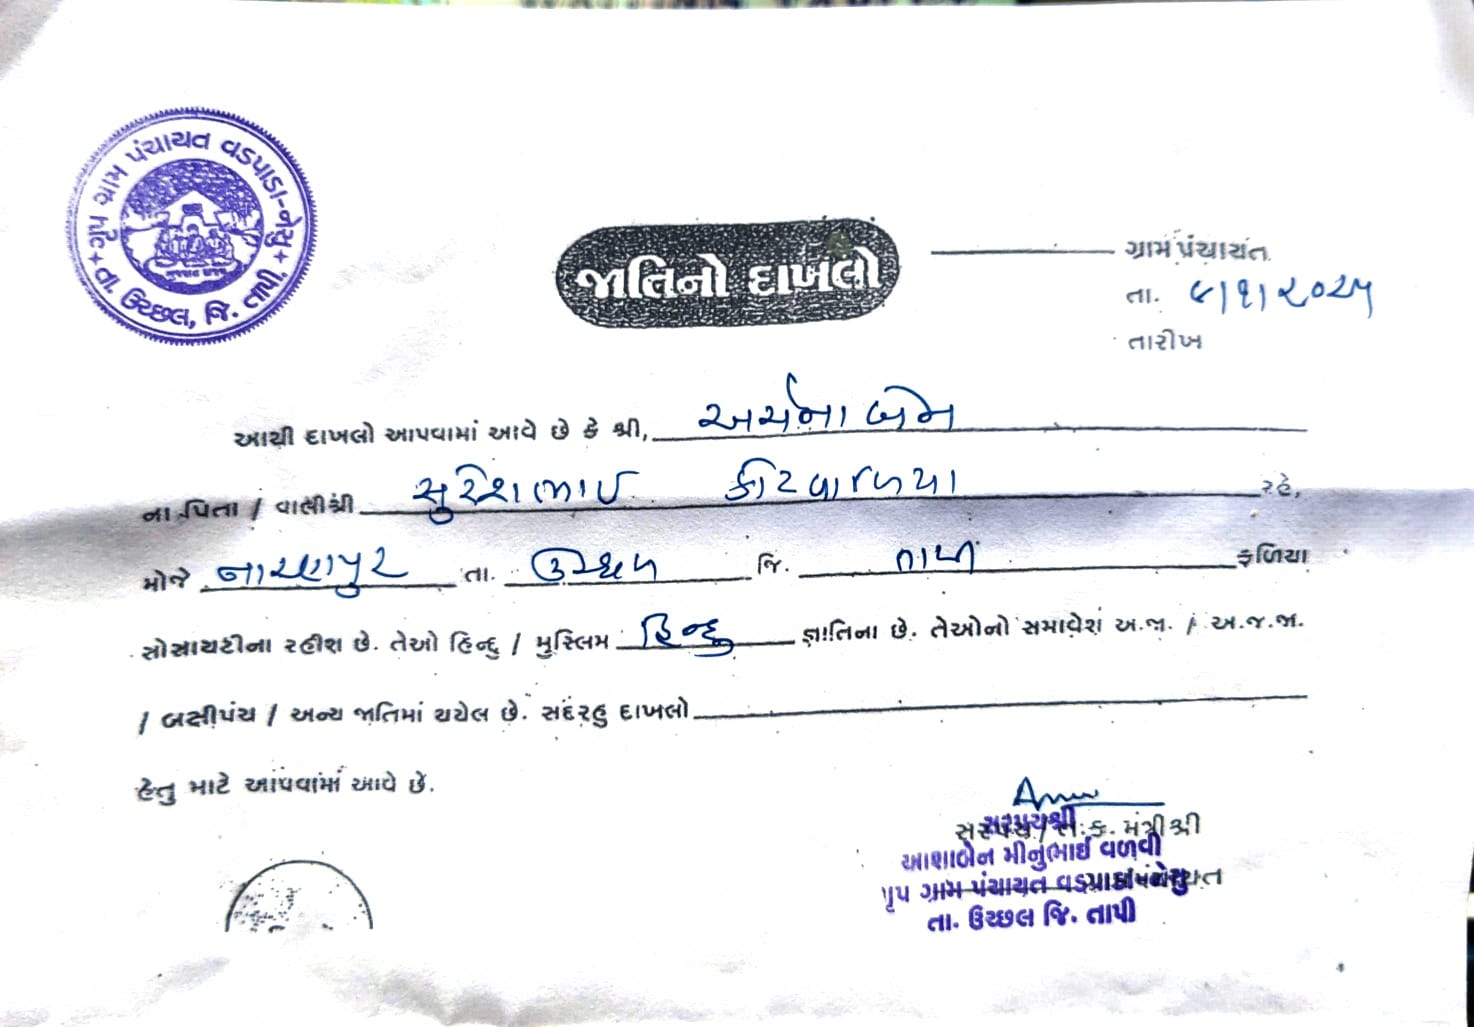 * ગૃપ ગ્રામ પંચાયત વડપાડા-નેસુ * તા. ઉચ્છલ, જિ. તાપી.
જાતિનો દાખલો
ગ્રામ પંચાયત
તા. ૯/૧/૨૦૨૫
તારીખ
આથી દાખલો આપવામાં આવે છે કે શ્રી, અર્ચના બેન
ના પિતા / વાલીશ્રી સુરેશભાઈ કોટવાળીયા રહે,
મોજે નારણપુર તા. ઉચ્છલ જિ. તાપી ફળિયા
સોસાયટીના રહીશ છે. તેઓ હિન્દુ / મુસ્લિમ હિન્દુ જ્ઞાતિના છે. તેઓનો સમાવેશ અ.જા. / અ.જ.જા.
/ બક્ષીપંચ / અન્ય જાતિમાં થયેલ છે. સદરહુ દાખલો
હેતુ માટે આપવામાં આવે છે.
સરપંચ / ત.ક. મંત્રીશ્રી
સરપંચશ્રી
આશાબેન મીનુભાઈ વળવી
ગૃપ ગ્રામ પંચાયત વડપાડા-નેસુ
તા. ઉચ્છલ જિ. તાપી